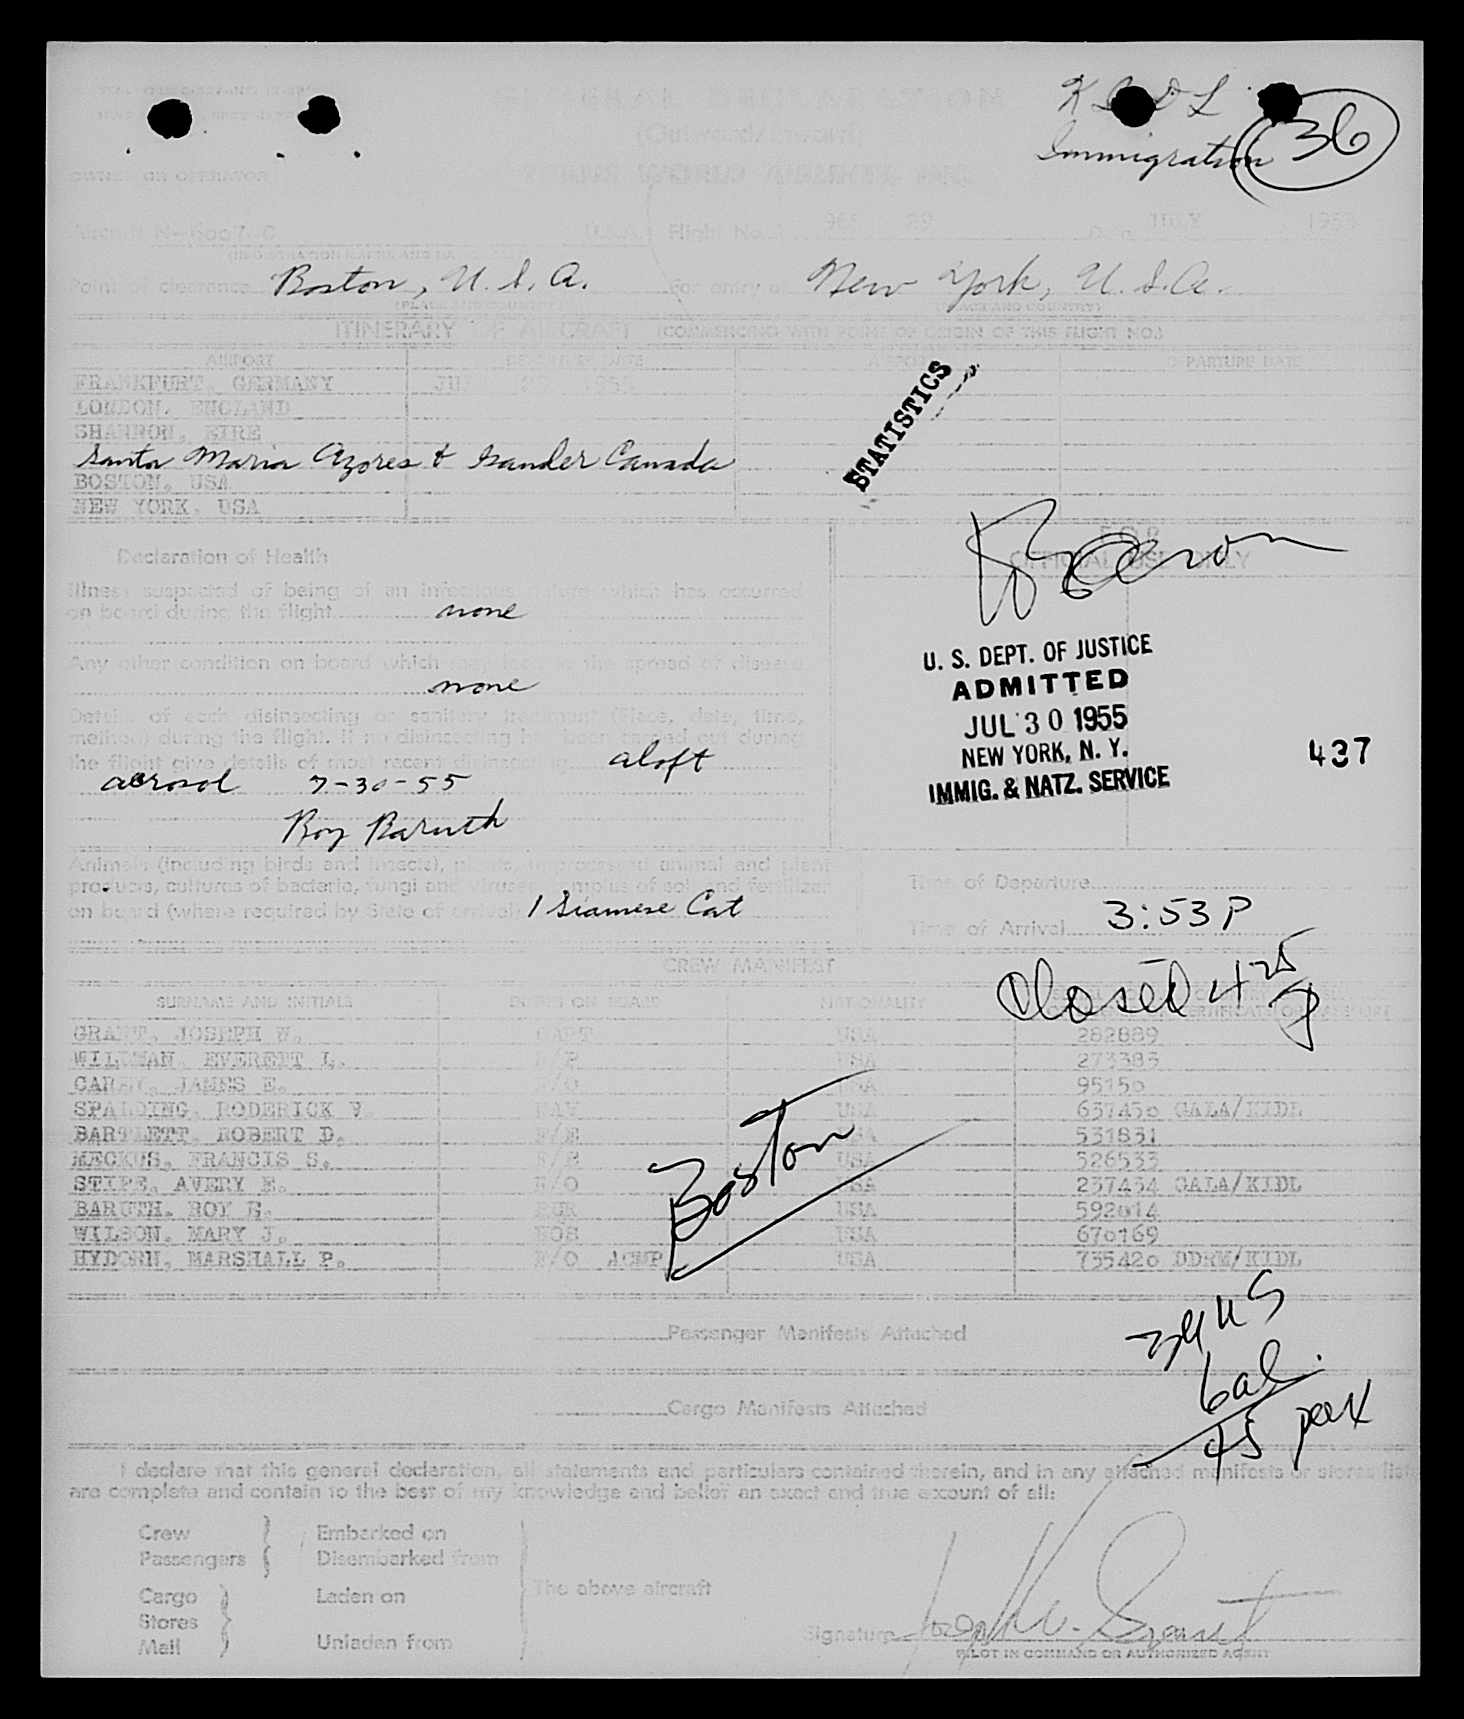 Immigration 36
OWNER OR OPERATOR
Aircraft U.S.A. Flight No. JULY
Point of clearance Boston, U.S.A. For entry at New York, U.S.A.
(PLACE AND COUNTRY) (PLACE AND COUNTRY)
ITINERARY OF AIRCRAFT (COMMENCING WITH POINT OF ORIGIN OF THIS FLIGHT NO.)
AIRPORT DEPARTURE DATE AIRPORT DEPARTURE DATE
FRANKFURT, GERMANY
LONDON, ENGLAND
SHANNON, EIRE
Santa Maria Azores & Gander Canada
BOSTON, USA
NEW YORK, USA
STATISTICS
Declaration of Health
FOR
OFFICIAL USE ONLY
Illness suspected of being of an infectious nature which has occurred
on board during the flight none
Any other condition on board which may lead to the spread of disease
none
Details of each disinsecting or sanitary treatment (Place, date, time,
method) during the flight. If no disinsecting has been carried out during
the flight give details of most recent disinsecting aloft
aerosol 7-30-55
Roy Baruth
U. S. DEPT. OF JUSTICE
ADMITTED
JUL 30 1955
NEW YORK, N. Y.
IMMIG. & NATZ. SERVICE
437
Animals (including birds and insects), plants, unprocessed animal and plant
products, cultures of bacteria, fungi and viruses, samples of soil and fertilizer
on board (where required by State of arrival) 1 Siamese Cat
Time of Departure
Time of Arrival 3:53 P
Closed 4 25 P
CREW MANIFEST
SURNAME AND INITIALS DUTIES ON BOARD NATIONALITY
GRANT, JOSEPH W. CAPT USA 282889
WILLMAN, EVERETT L. USA 273383
CAREY, JAMES E. USA 95150
SPALDING, RODERICK V. NAV USA 637450 GALA/KIDL
BARTLETT, ROBERT D. F/E USA 531831
MECKUS, FRANCIS S. USA 526533
STIPE, AVERY E. USA 237454 GALA/KIDL
BARUTH, ROY H. PUR USA 592614
WILSON, MARY J. HOS USA 670169
HYDORN, MARSHALL P. F/O ACMP USA 735420 DDRM/KIDL
Boston
Passenger Manifests Attached
39 US
6 al
45 pax
Cargo Manifests Attached
I declare that this general declaration, all statements and particulars contained therein, and in any attached manifests or stores lists
are complete and contain to the best of my knowledge and belief an exact and true account of all:
Crew
Passengers
Embarked on
Disembarked from
Cargo
Stores
Mail
Laden on
Unladen from
The above aircraft
Signature Joseph W. Grant
PILOT IN COMMAND OR AUTHORIZED AGENT